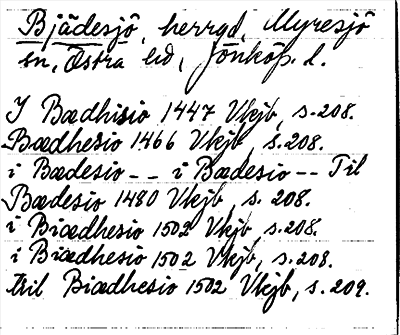 Bjädesjö, herrgd, Myresjö
sn, Östra hd, Jönköp. l.
I Bædhisio 1447 Vkjb, s. 208.
Bædhesio 1466 Vkjb, s. 208.
i Bædesio -- i Bædesio -- Til
Bædesio 1480 Vkjb, s. 208.
i Biædhesio 1502 Vkjb s. 208.
i Biædhesio 1502 Vkjb, s. 208.
till Biædhesio 1502 Vkjb, s. 209.